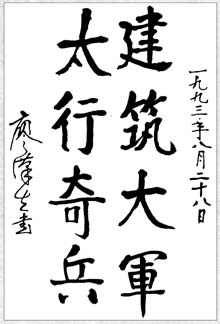 一九九三年八月二十八日
建筑大軍
太行奇兵
廖漢生書